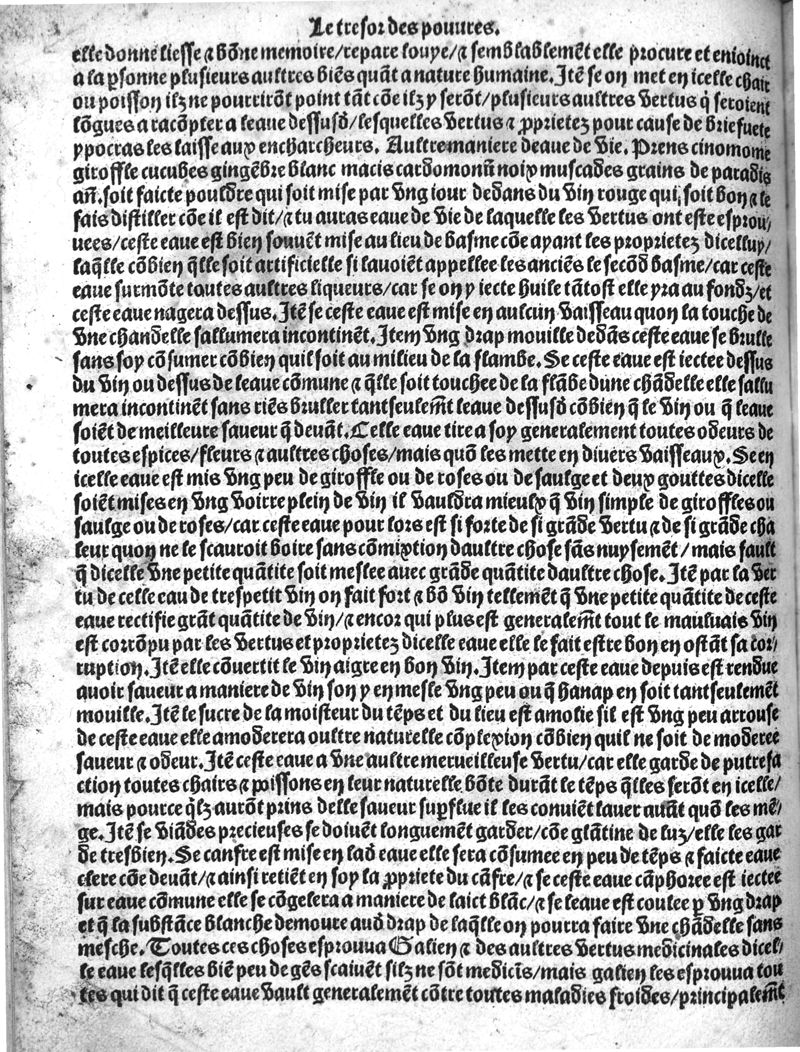 Le tresor des pouures.
elle donne liesse ⁊ bõne memoire/repare louye/⁊ semblablemẽt elle procure et enioinct
a la p̱sonne plusieurs aultres biẽs quãt a nature humaine. Jtẽ se on met en icelle chair
ou poisson ilz ne pourrirõt point tãt cõe ilz y serõt/plusieurs aultres vertus q̃ seroient
lõgues a racõpter a leaue dessusd̃/lesquelles vertus ⁊ ꝓprietez pour cause de briefuete
ypocras les laisse aux encharcheurs. Aultre maniere deaue de vie. Prens cinomome
giroffle cucubes gingẽbre blanc macis cardomonũ noix muscades grains de paradis
añ. soit faicte pouldre qui soit mise par vng iour dedans du vin rouge qui soit bon ⁊ le
fais distiller cõe il est dit/⁊ tu auras eaue de vie de laquelle les vertus ont este esprou/
uees/ceste eaue est bien souuẽt mise au lieu de basme cõe ayant les proprietez dicelluy/
laq̃lle cõbien q̃lle soit artificielle si lauoiẽt appellee les anciẽs le secõd basme/car ceste
eaue surmõte toutes aultres liqueurs/car se on y iecte huile tãtost elle yra au fondz/et
ceste eaue nagera dessus. Jtẽ se ceste eaue est mise en aulcun vaisseau quon la touche de
vne chandelle sallumera incontinẽt. Jtem vng drap mouille dedãs ceste eaue se brulle
sans soy cõsumer cõbien quil soit au milieu de la flambe. Se ceste eaue est iectee dessus
du vin ou dessus de leaue cõmune ⁊ q̃lle soit touchee de la flãbe dune chãdelle elle sallu
mera incontinẽt sans riẽs bruller tantseulem̃t leaue dessusd̃ cõbien q̃ le vin ou q̃ leaue
soiẽt de meilleure saueur q̃ deuãt. Celle eaue tire a soy generalement toutes odeurs de
toutes espices/fleurs ⁊ aultres choses/mais quõ les mette en diuers vaisseaux. Se en
icelle eaue est mis vng peu de giroffle ou de roses ou de saulge et deux gouttes dicelle
soiẽt mises en vng voirre plein de vin il vauldra mieulx q̃ vin simple de giroffles ou
saulge ou de roses/car ceste eaue pour lors est si forte de si grãde vertu ⁊ de si grãde cha
leur quon ne le scauroit boire sans cõmixtion daultre chose sãs nuysemẽt/mais fault
q̃ dicelle vne petite quãtite soit meslee auec grãde quãtite daultre chose. Jtẽ par la ver
tu de celle eau de trespetit vin on fait fort ⁊ bõ vin tellemẽt q̃ vne petite quãtite de ceste
eaue rectifie grãt quãtite de vin/⁊ encor qui plus est generalem̃t tout le mauluais vin
est corrõpu par les vertus et proprietez dicelle eaue elle le fait estre bon en ostãt sa cor/
ruption. Jtẽ elle cõuertit le vin aigre en bon vin. Jtem par ceste eaue depuis est rendue
auoir saueur a maniere de vin son y en mesle vng peu ou q̃ hanap en soit tantseulemẽt
mouille. Jtẽ le sucre de la moisteur du tẽps et du lieu est amolie sil est vng peu arrouse
de ceste eaue elle amoderera oultre naturelle cõplexion cõbien quil ne soit de moderee
saueur ⁊ odeur. Jtẽ ceste eaue a vne aultre merueilleuse vertu/car elle garde de putrefa
ction toutes chairs ⁊ poissons en leur naturelle bõte durãt le tẽps q̃lles serõt en icelle/
mais pource q̃lz aurõt prins delle saueur sup̱flue il les conuiẽt lauer auãt quõ les mẽ/
ge. Jtẽ se viãdes precieuses se doiuẽt longuemẽt garder/cõe glãtine de luz/elle les gar
de tresbien. Se canfre est mise en lad̃ eaue elle sera cõsumee en peu de tẽps ⁊ faicte eaue
clere cõe deuãt/⁊ ainsi retiẽt en soy la ꝓpriete du cãfre/⁊ se ceste eaue cãphoree est iectee
sur eaue cõmune elle se cõgelera a maniere de laict blãc/⁊ se leaue est coulee p̱ vng drap
et q̃ la substãce blanche demoure aud̃ drap de laq̃lle on pourra faire vne chãdelle sans
mesche. Toutes ces choses esprouua Galien ⁊ des aultres vertus medicinales dicel/
le eaue lesq̃lles biẽ peu de gẽs scaiuẽt silz ne sõt medicĩs/mais galien les esprouua tou
tes qui dit q̃ ceste eaue vault generalemẽt cõtre toutes maladies froides/principalem̃t